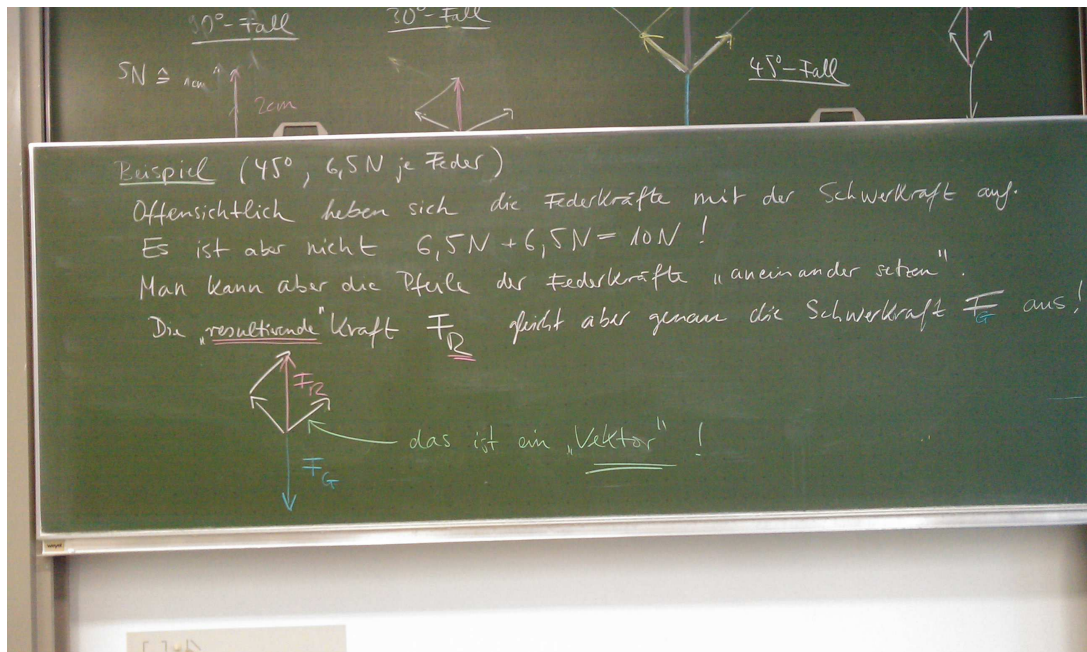 30°-Fall
45°-Fall
5N ≙ 1cm
2cm
Beispiel (45°, 6,5N je Feder)
Offensichtlich heben sich die Federkräfte mit der Schwerkraft auf.
Es ist aber nicht 6,5N + 6,5N = 10N !
Man kann aber die Pfeile der Federkräfte „aneinander setzen".
Die „resultierende" Kraft F_R gleicht aber genau die Schwerkraft F_G aus!
F_R
das ist ein „Vektor" !
F_G